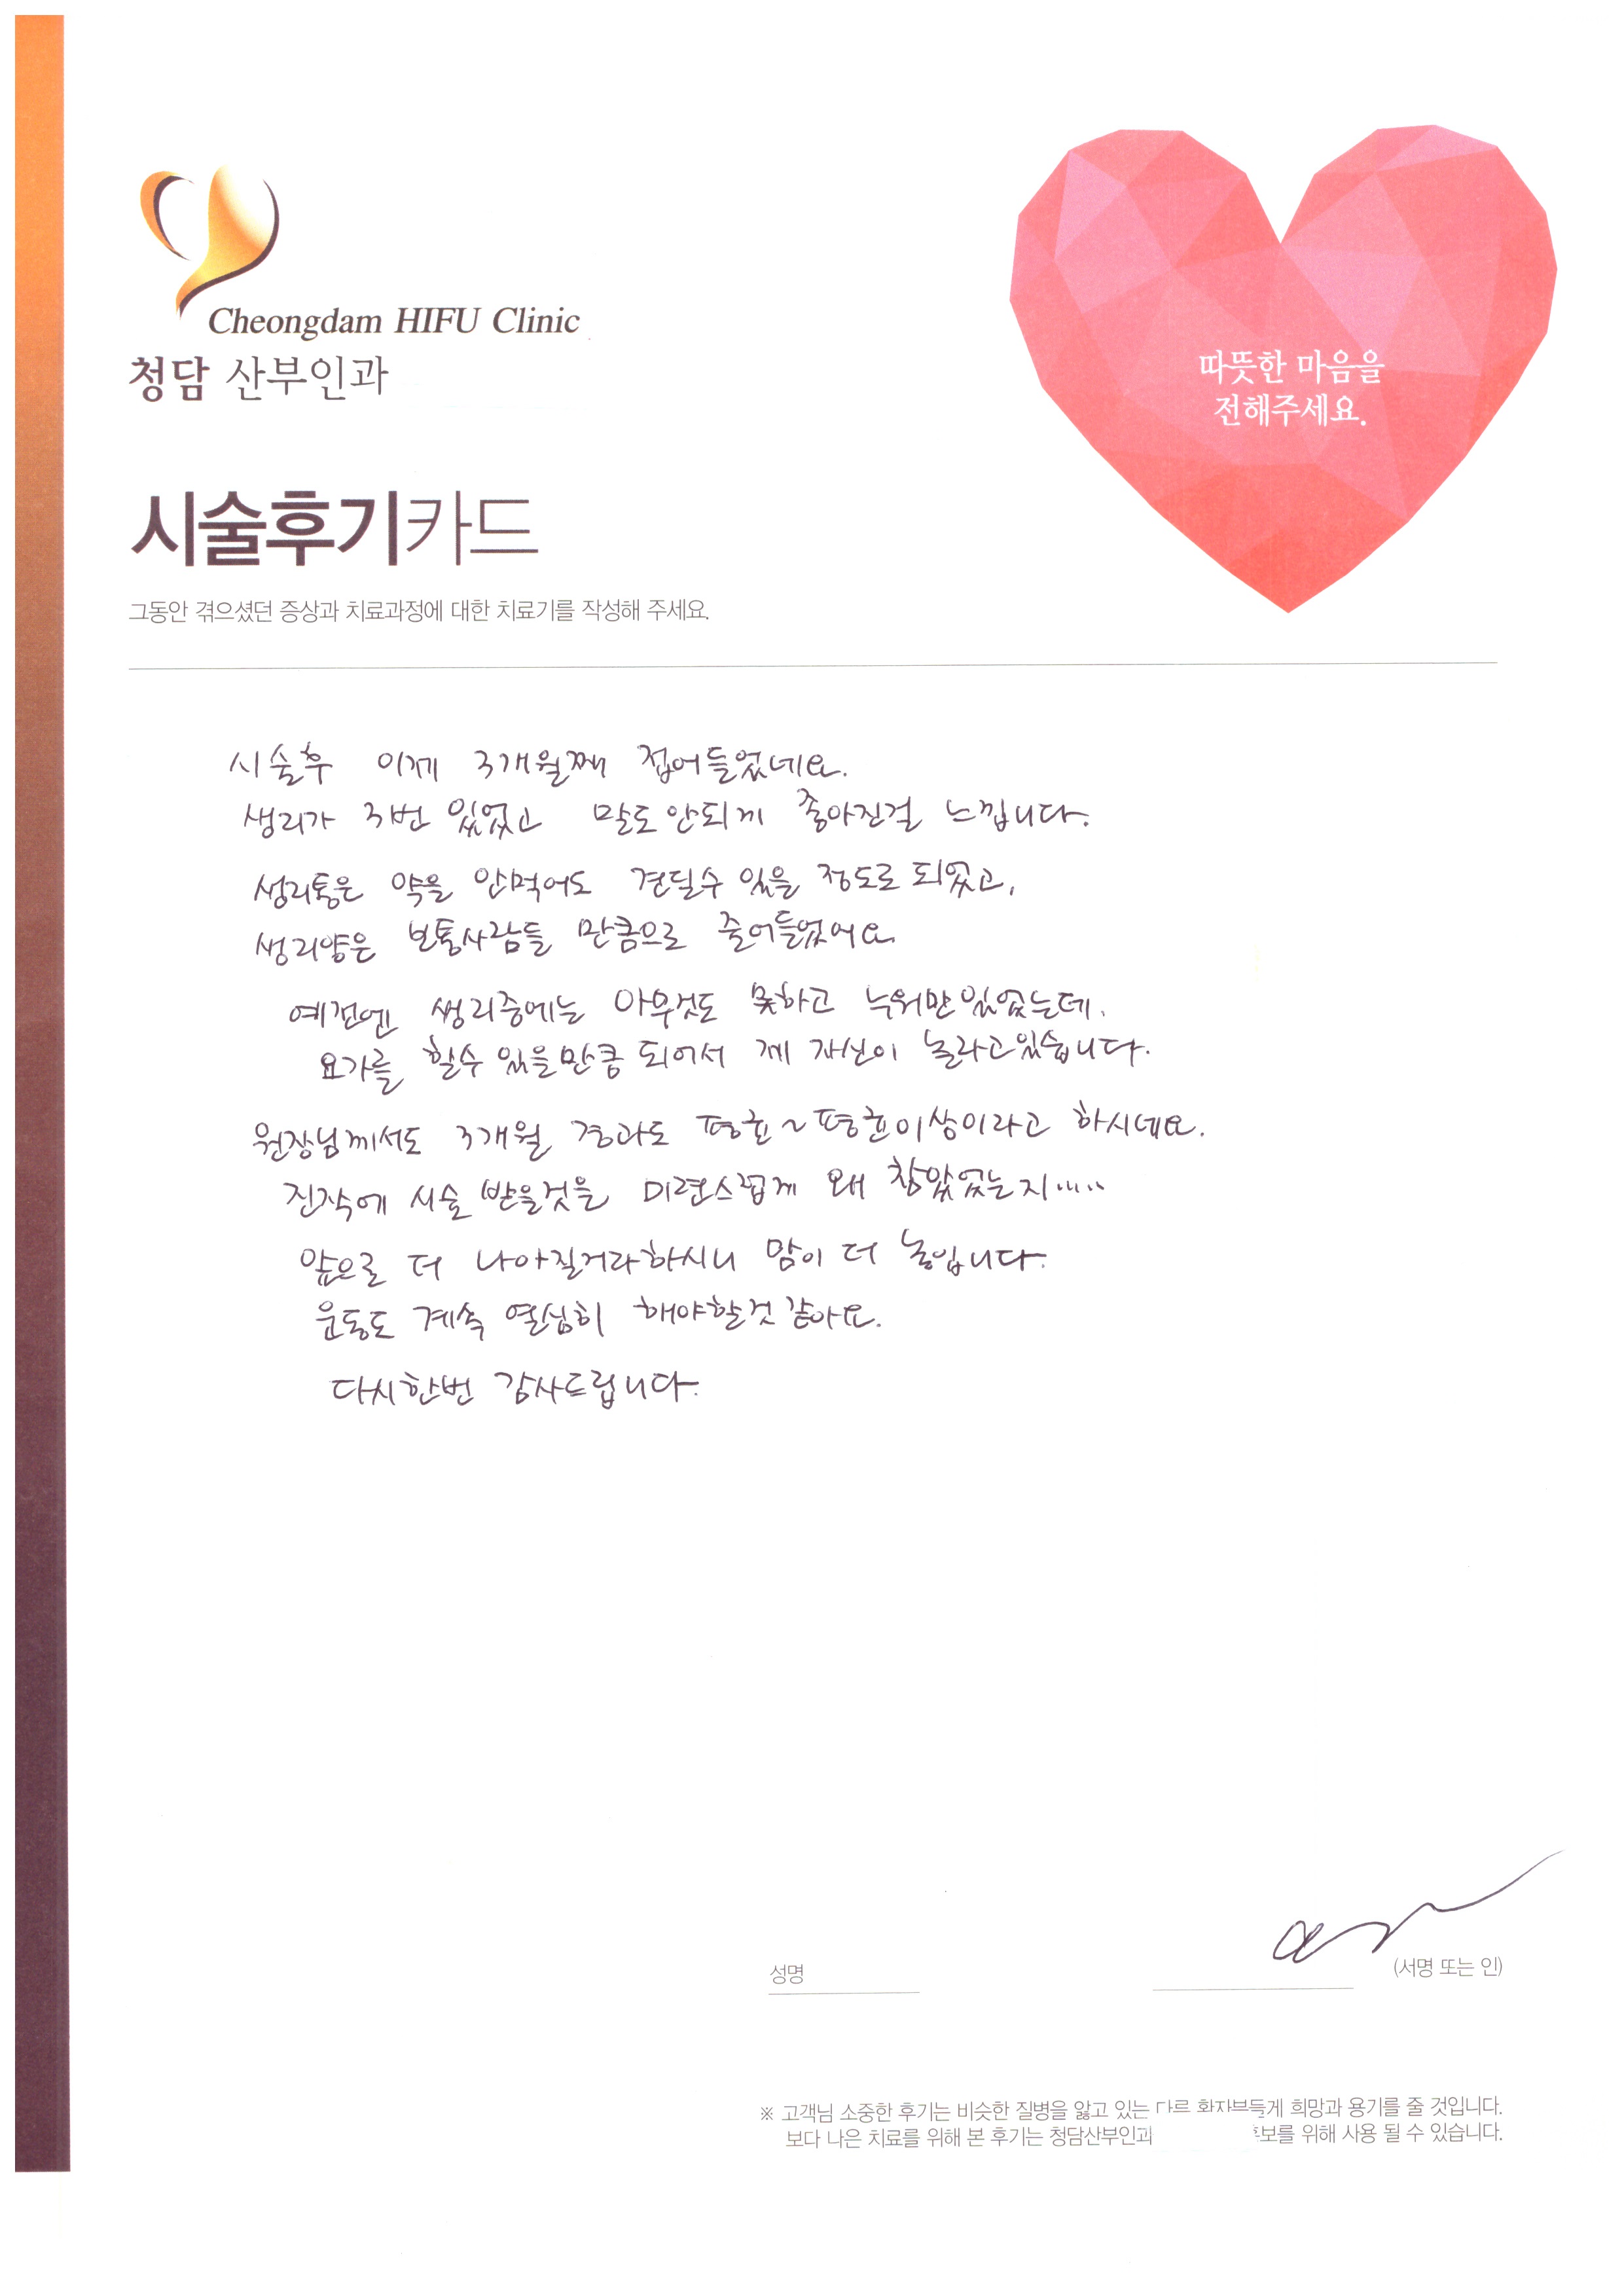 Cheongdam HIFU Clinic
청담 산부인과
따뜻한 마음을
전해주세요.
시술후기카드
그동안 겪으셨던 증상과 치료과정에 대한 치료기를 작성해 주세요.
시술후 이제 3개월째 접어들었네요.
생리가 3번 있었고 말도안되게 좋아진걸 느낍니다.
생리통은 약을 안먹어도 견딜수 있을 정도로 되었고,
생리양은 보통사람들 만큼으로 줄어들었어요
예전엔 생리중에는 아무것도 못하고 누워만있었는데,
요가를 할수 있을만큼 되어서 제 자신이 놀라고있습니다.
원장님께서도 3개월 경과도 평균~평균이상이라고 하시네요.
진작에 시술 받을것을 미련스럽게 왜 참았었는지.....
앞으로 더 나아질거라하시니 맘이 더 놓입니다.
운동도 계속 열심히 해야할것 같아요.
다시한번 감사드립니다.
성명
(서명 또는 인)
※ 고객님 소중한 후기는 비슷한 질병을 앓고 있는 다른 환자분들게 희망과 용기를 줄 것입니다.
보다 나은 치료를 위해 본 후기는 청담산부인과 홍보를 위해 사용 될 수 있습니다.